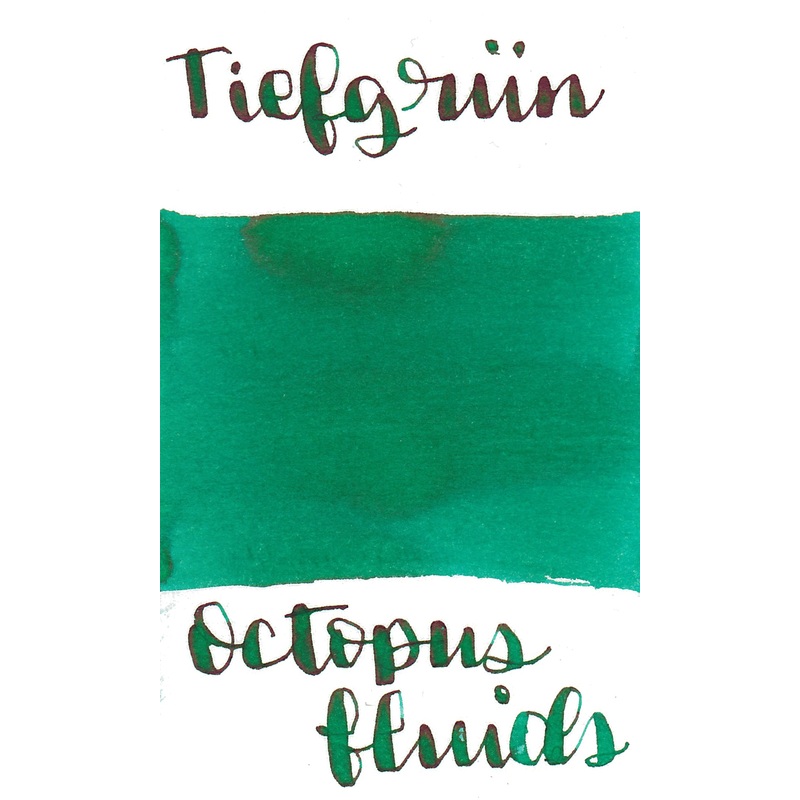 Tiefgrün
Octopus
fluids